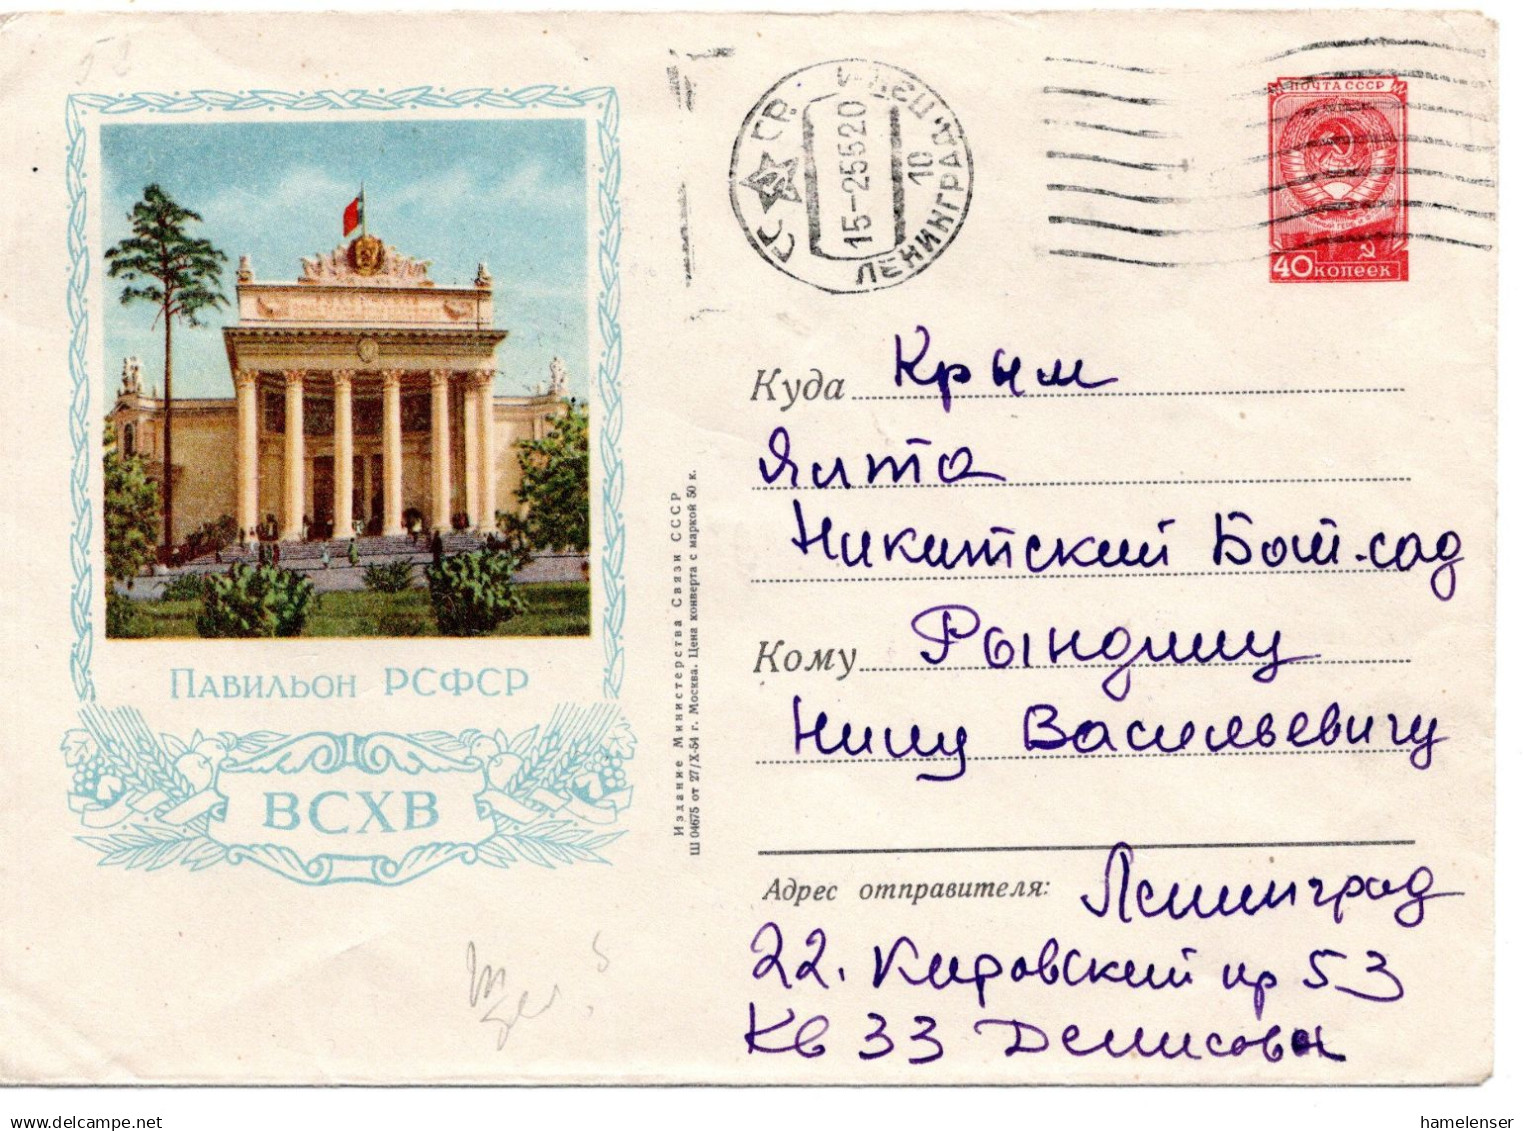 52
СССР
ЛЕНИНГРАД. П
15-25520
10
ПОЧТА СССР
40 КОПЕЕК
Павильон РСФСР
ВСХВ
Издание Министерства Связи СССР
Ш 04675 от 27/X-54 г. Москва. Цена конверта с маркой 50 к.
Куда Крым
Ялта
Никитский Бот. сад
Кому Рындину
Нилу Васильевичу
Адрес отправителя: Ленинград
22. Кировский пр 53
Кв 33 Денисова
hamelenser
delcampe.net